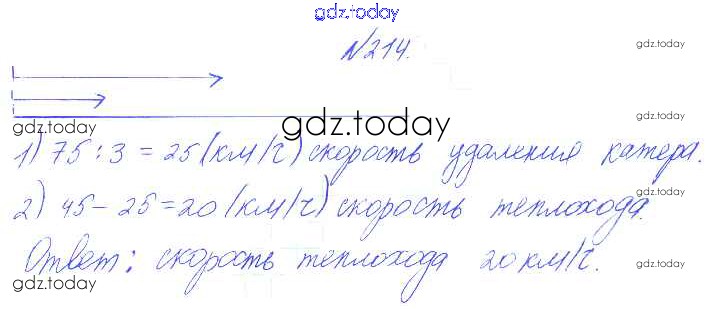 gdz.today
№214.
gdz.today
gdz.today
gdz.today
gdz.today
1) 75 : 3 = 25 (км/ч) скорость удаления катера.
gdz.today
2) 45 - 25 = 20 (км/ч) скорость теплохода.
gdz.today
Ответ: скорость теплохода 20 км/ч.
gdz.today
gdz.today